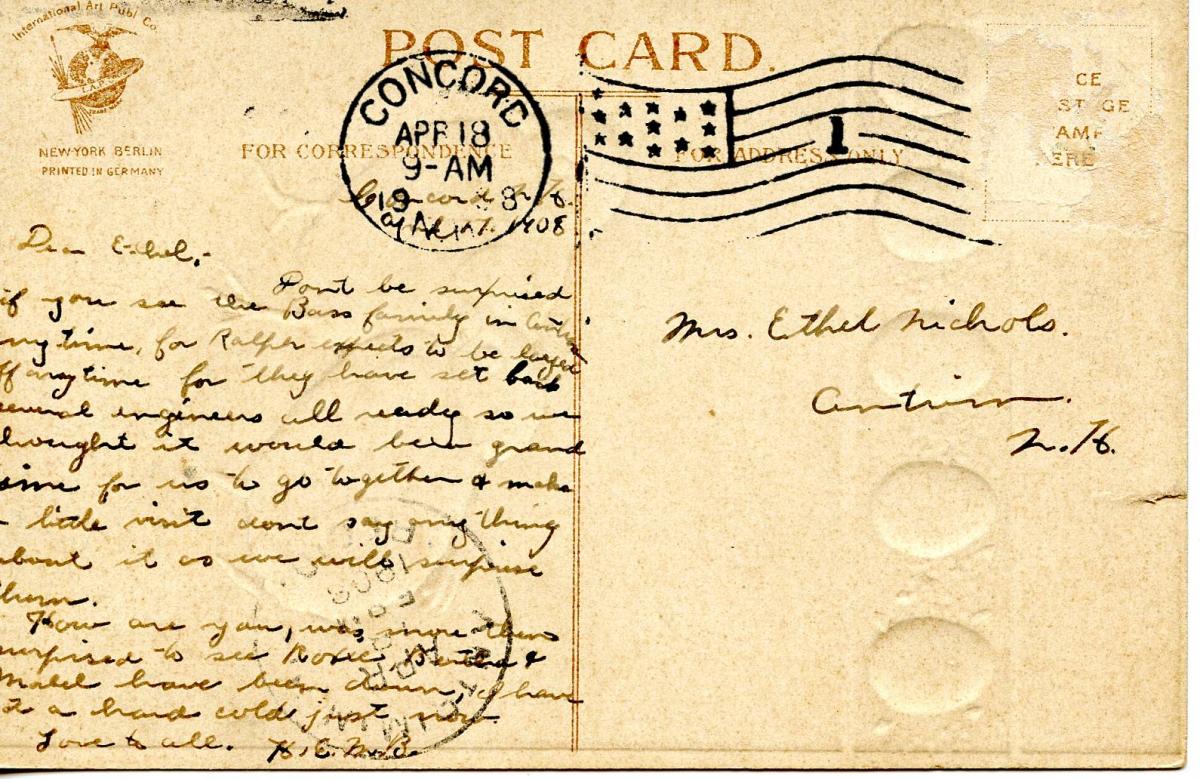 International Art Publ Co.
NEW-YORK BERLIN
PRINTED IN GERMANY
POST CARD.
FOR CORRESPONDENCE
FOR ADDRESS ONLY
CONCORD
APR 18
9-AM
19 8
N.H.
1
CE
ST GE
AMP
HERE
Concord N.H.
April 17. 1908
Dear Ethel,-
Dont be surprised
if you see the Bass family in Antrim
anytime, for Ralph expects to be layed
off anytime for they have set back
several engineers all ready so we
thought it would be a grand
time for us to go together & make
a little visit dont say any thing
about it as we will surprise
them.
How are you, was more then
surprised to see Roxie, Bertha &
Mabel have been down, I have
a hard cold just now
Love to all. H.E.M.B.
Mrs. Ethel Nichols.
Antrim.
N.H.
ANTRIM
APR
1908